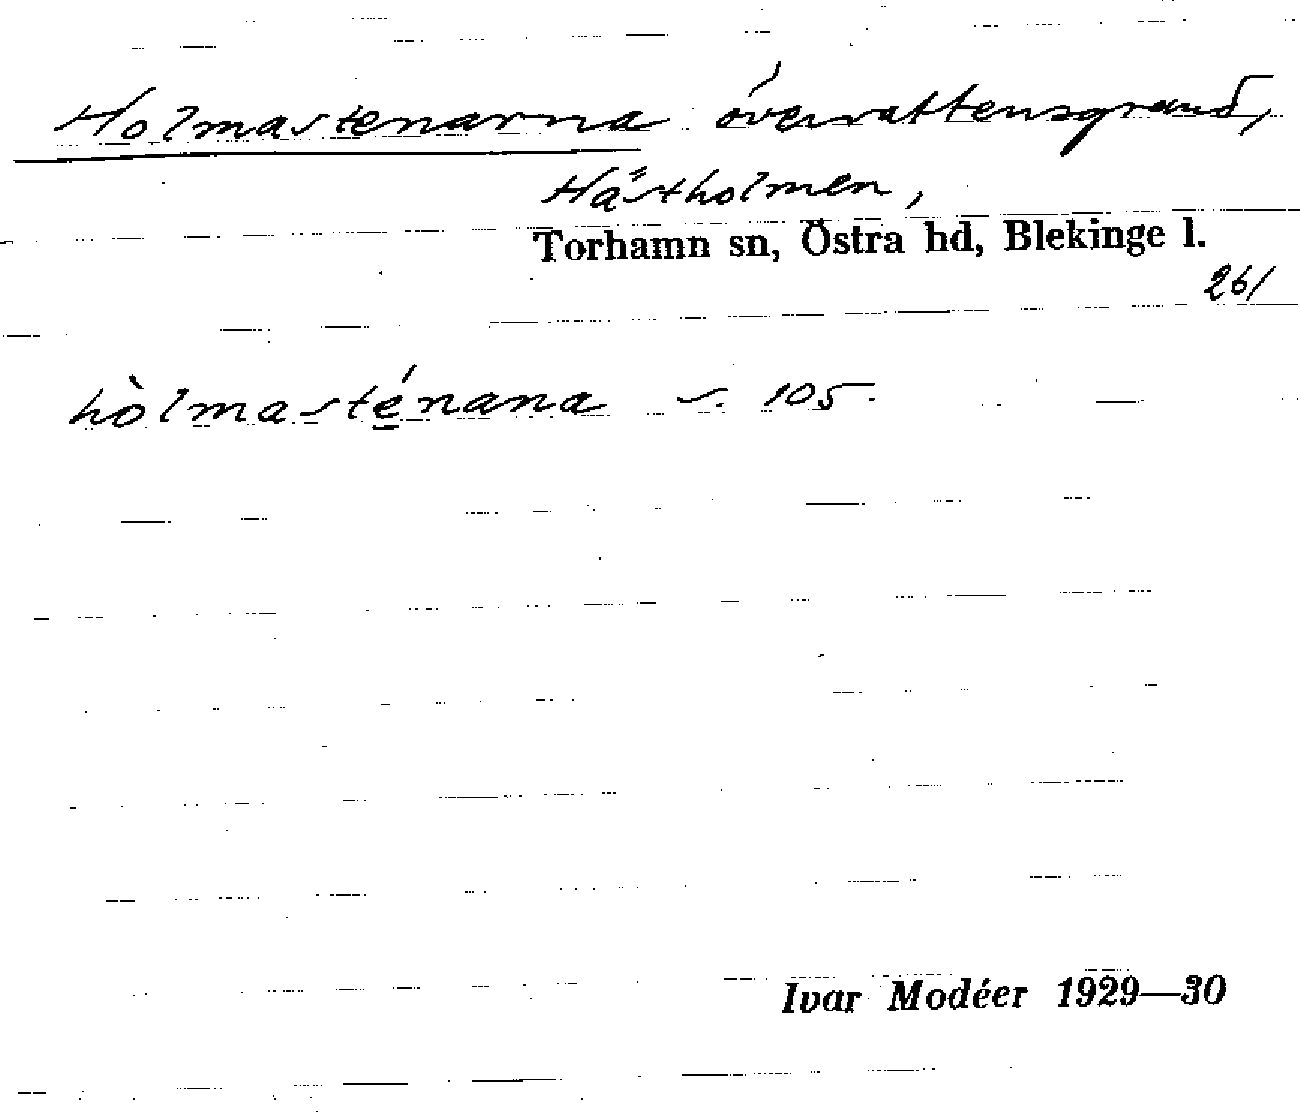 Holmastenarna övervattensgrund,
Hästholmen,
Torhamn sn, Östra hd, Blekinge l.
261
hòlmasténana s. 105.
Ivar Modéer 1929—30